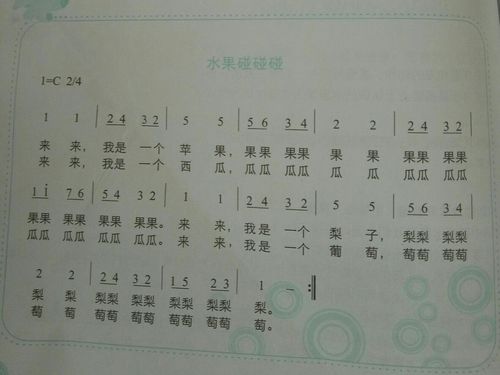 水果碰碰碰
1=C 2/4
1 1 | 2 4 3 2 | 5 5 | 5 6 3 4 | 2 2 | 2 4 3 2 |
来 来， 我是 一个 苹 果， 果果 果果 果 果 果果 果果
来 来， 我是 一个 西 瓜， 瓜瓜 瓜瓜 瓜 瓜 瓜瓜 瓜瓜
1 i 7 6 | 5 4 3 2 | 1 1 | 2 4 3 2 | 5 5 | 5 6 3 4 |
果果 果果 果果 果果。 来 来， 我是 一个 梨 子， 梨梨 梨梨
瓜瓜 瓜瓜 瓜瓜 瓜瓜。 来 来， 我是 一个 葡 萄， 萄萄 萄萄
2 2 | 2 4 3 2 | 1 5 2 3 | 1 – :‖
梨 梨 梨梨 梨梨 梨梨 梨梨 梨。
萄 萄 萄萄 萄萄 萄萄 萄萄 萄。